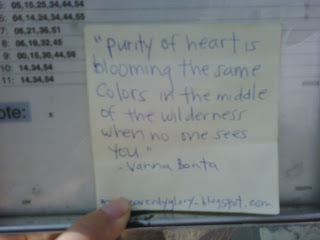 05,15,25,34,44,54
04,14,24,34,44,55
07: 06,21,36,51
08: 06,19,32,45
09: 00,15,30,44,59
10: 14,34,54
11: 14,34,54
ote:
"purity of heart is
blooming the same
colors in the middle
of the wilderness
when no one sees
you."
- Vanna Bonta
.blogspot.com